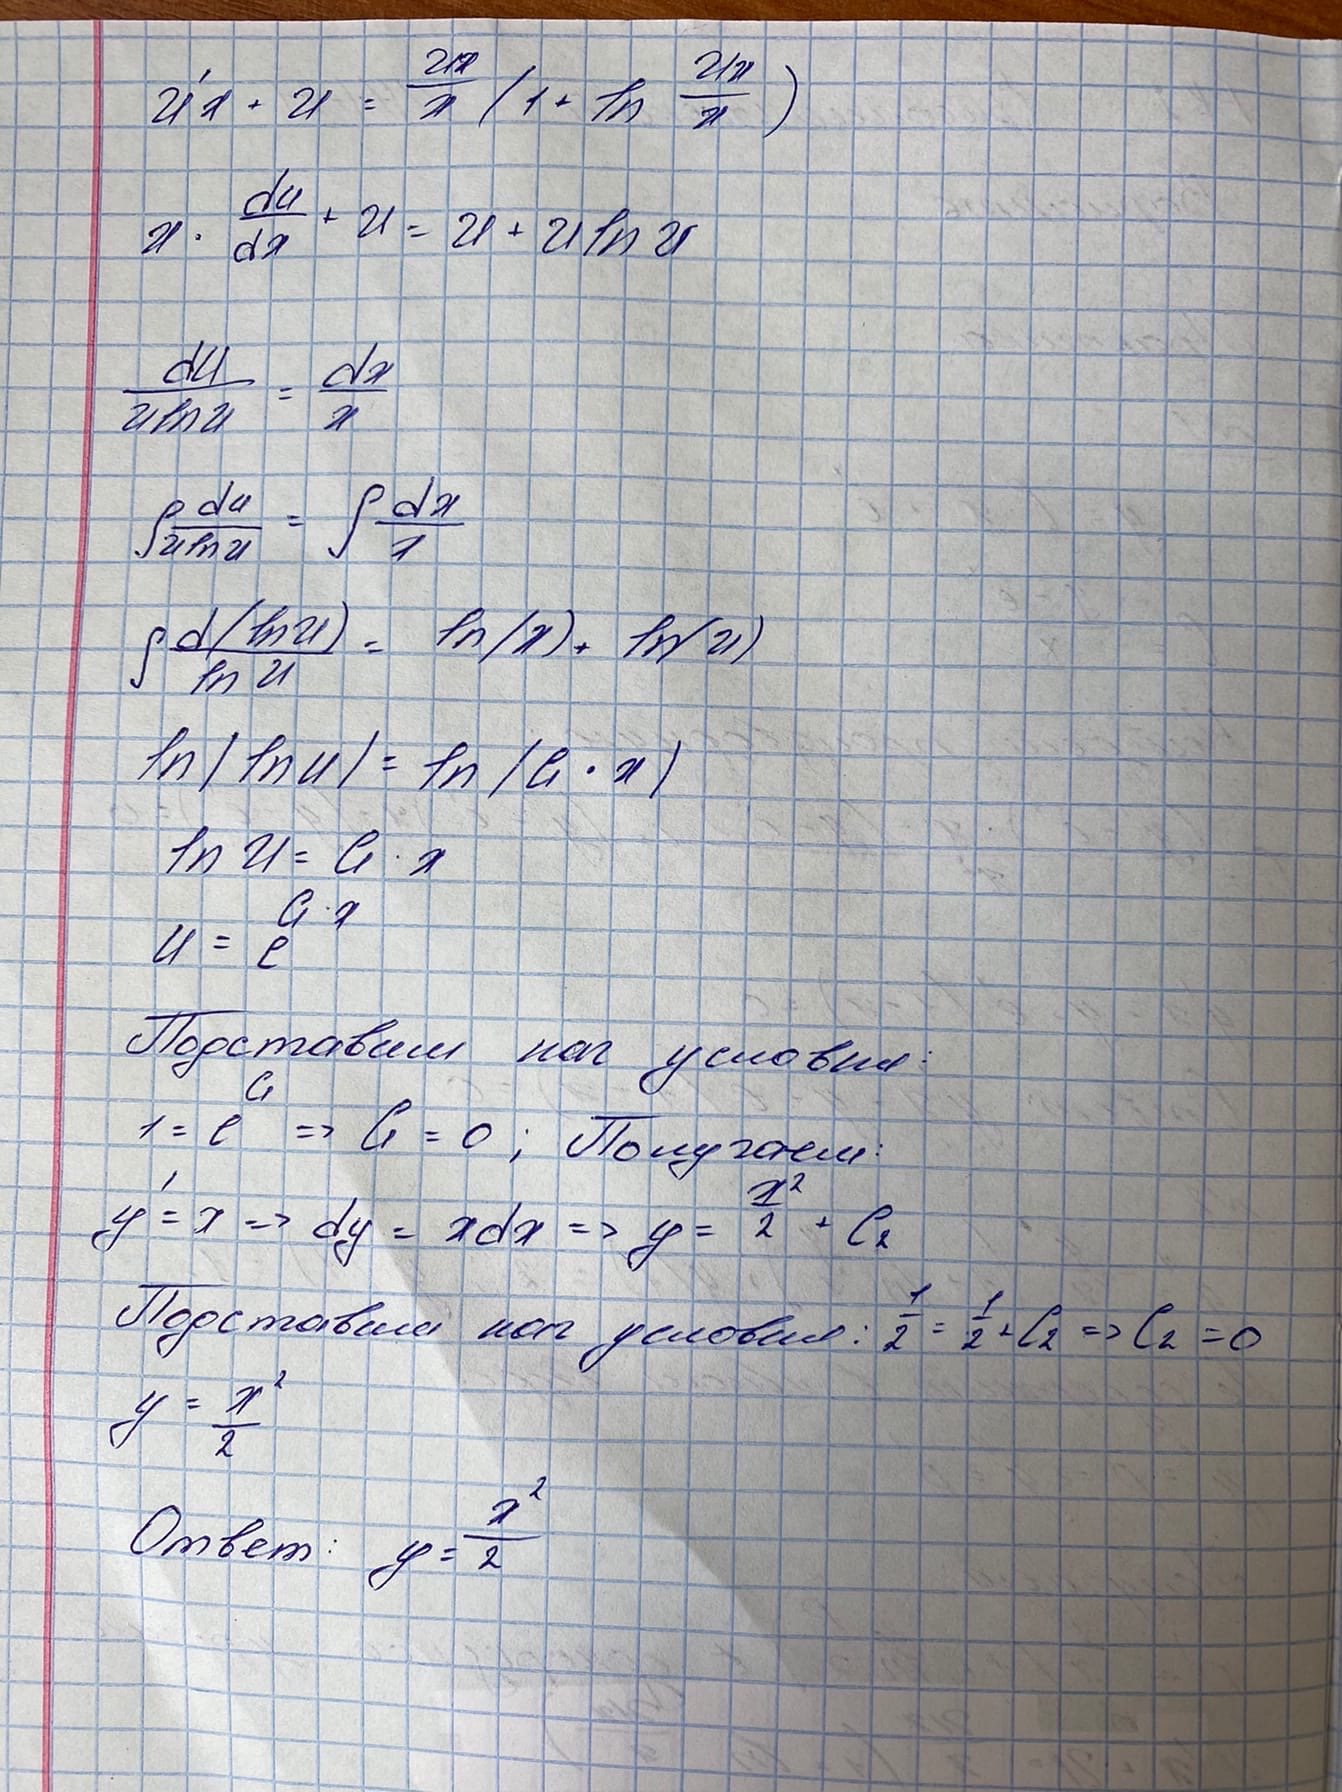 u'x + u = ux/x (1 + ln ux/x)
x · du/dx + u = u + u ln u
du/(u ln u) = dx/x
∫ du/(u ln u) = ∫ dx/x
∫ d(ln u)/ln u = ln(x) + ln(u)
ln|ln u| = ln|C₁ · x|
ln u = C₁ · x
u = e^(C₁·x)
Подставим нач условия:
1 = e^C₁ => C₁ = 0 ; Получаем:
y' = x => dy = xdx => y = x²/2 + C₂
Подставим нач условия: 1/2 = 1/2 + C₂ => C₂ = 0
y = x²/2
Ответ: y = x²/2